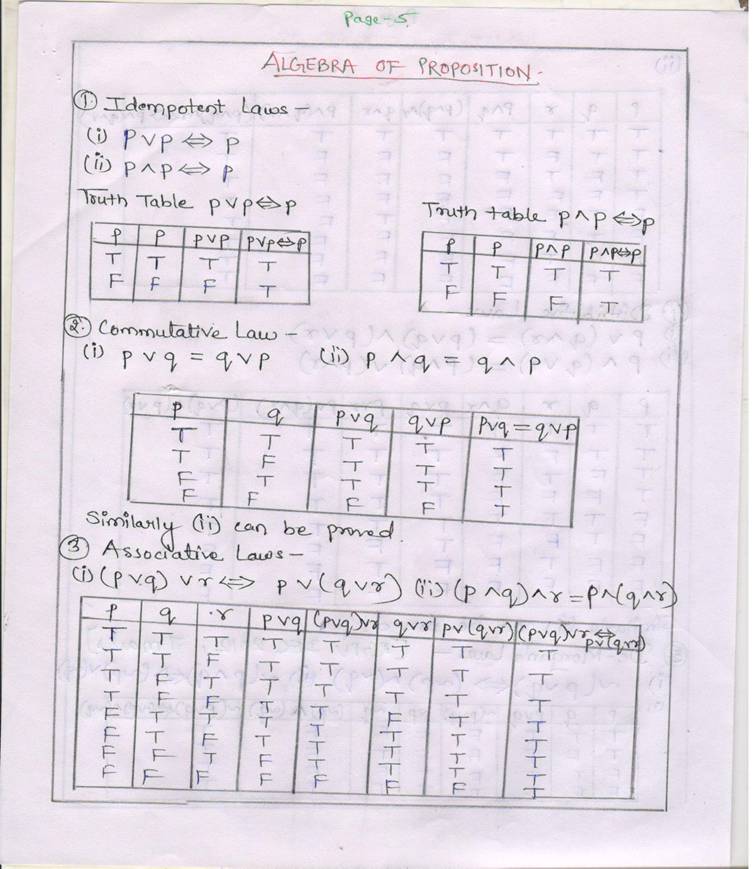 Page-5.
ALGEBRA OF PROPOSITION.
① Idempotent Laws -
(i) p∨p ⇔ p
(ii) p∧p ⇔ p
Truth Table p∨p⇔p
p p p∨p p∨p⇔p
T T T T
F F F T
Truth table p∧p⇔p
p p p∧p p∧p⇔p
T T T T
F F F T
②. Commutative Law -
(i) p∨q = q∨p (ii) p∧q = q∧p
p q p∨q q∨p p∨q=q∨p
T T T T T
T F T T T
F T T T T
F F F F T
Similarly (ii) can be proved.
③ Associative Laws -
(i) (p∨q)∨r ⇔ p∨(q∨r) (ii) (p∧q)∧r = p∧(q∧r)
p q r p∨q (p∨q)∨r q∨r p∨(q∨r) (p∨q)∨r ⇔ p∨(q∨r)
T T T T T T T T
T T F T T T T T
T F T T T T T T
T F F T T F T T
F T T T T T T T
F T F T T T T T
F F T F T T T T
F F F F F F F T